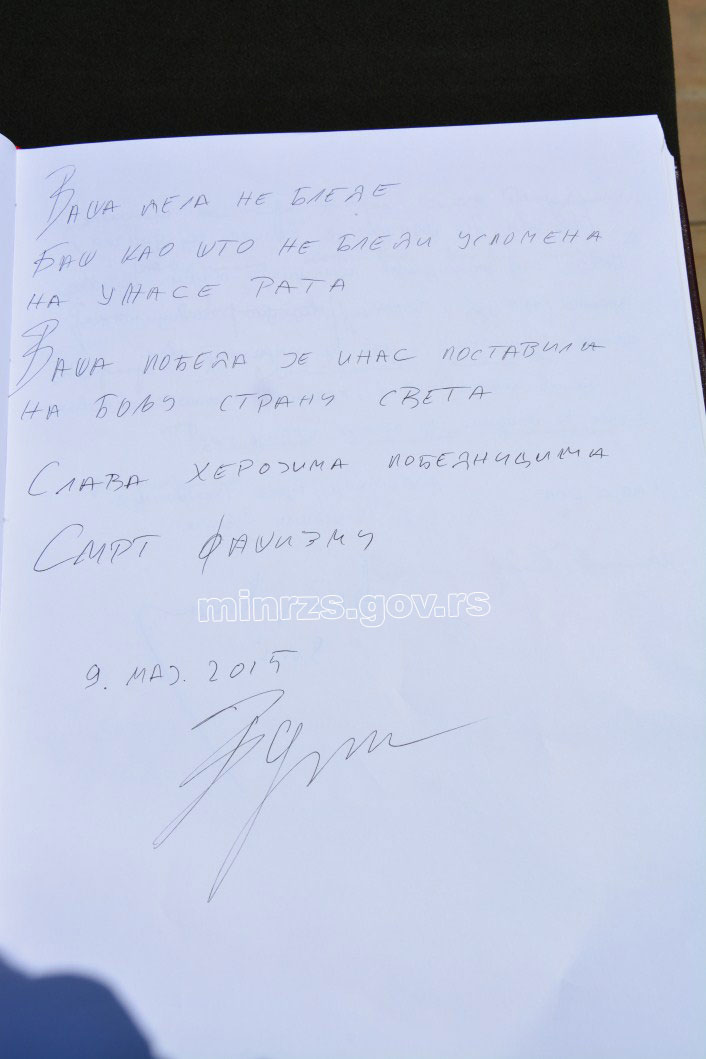 Ваша дела не бледе
Баш као што не бледи успомена
на ужасе рата
Ваша победа је и нас поставила
на бољу страну света
Слава херојима победницима
Смрт фашизму
minrzs.gov.rs
9. мај. 2015